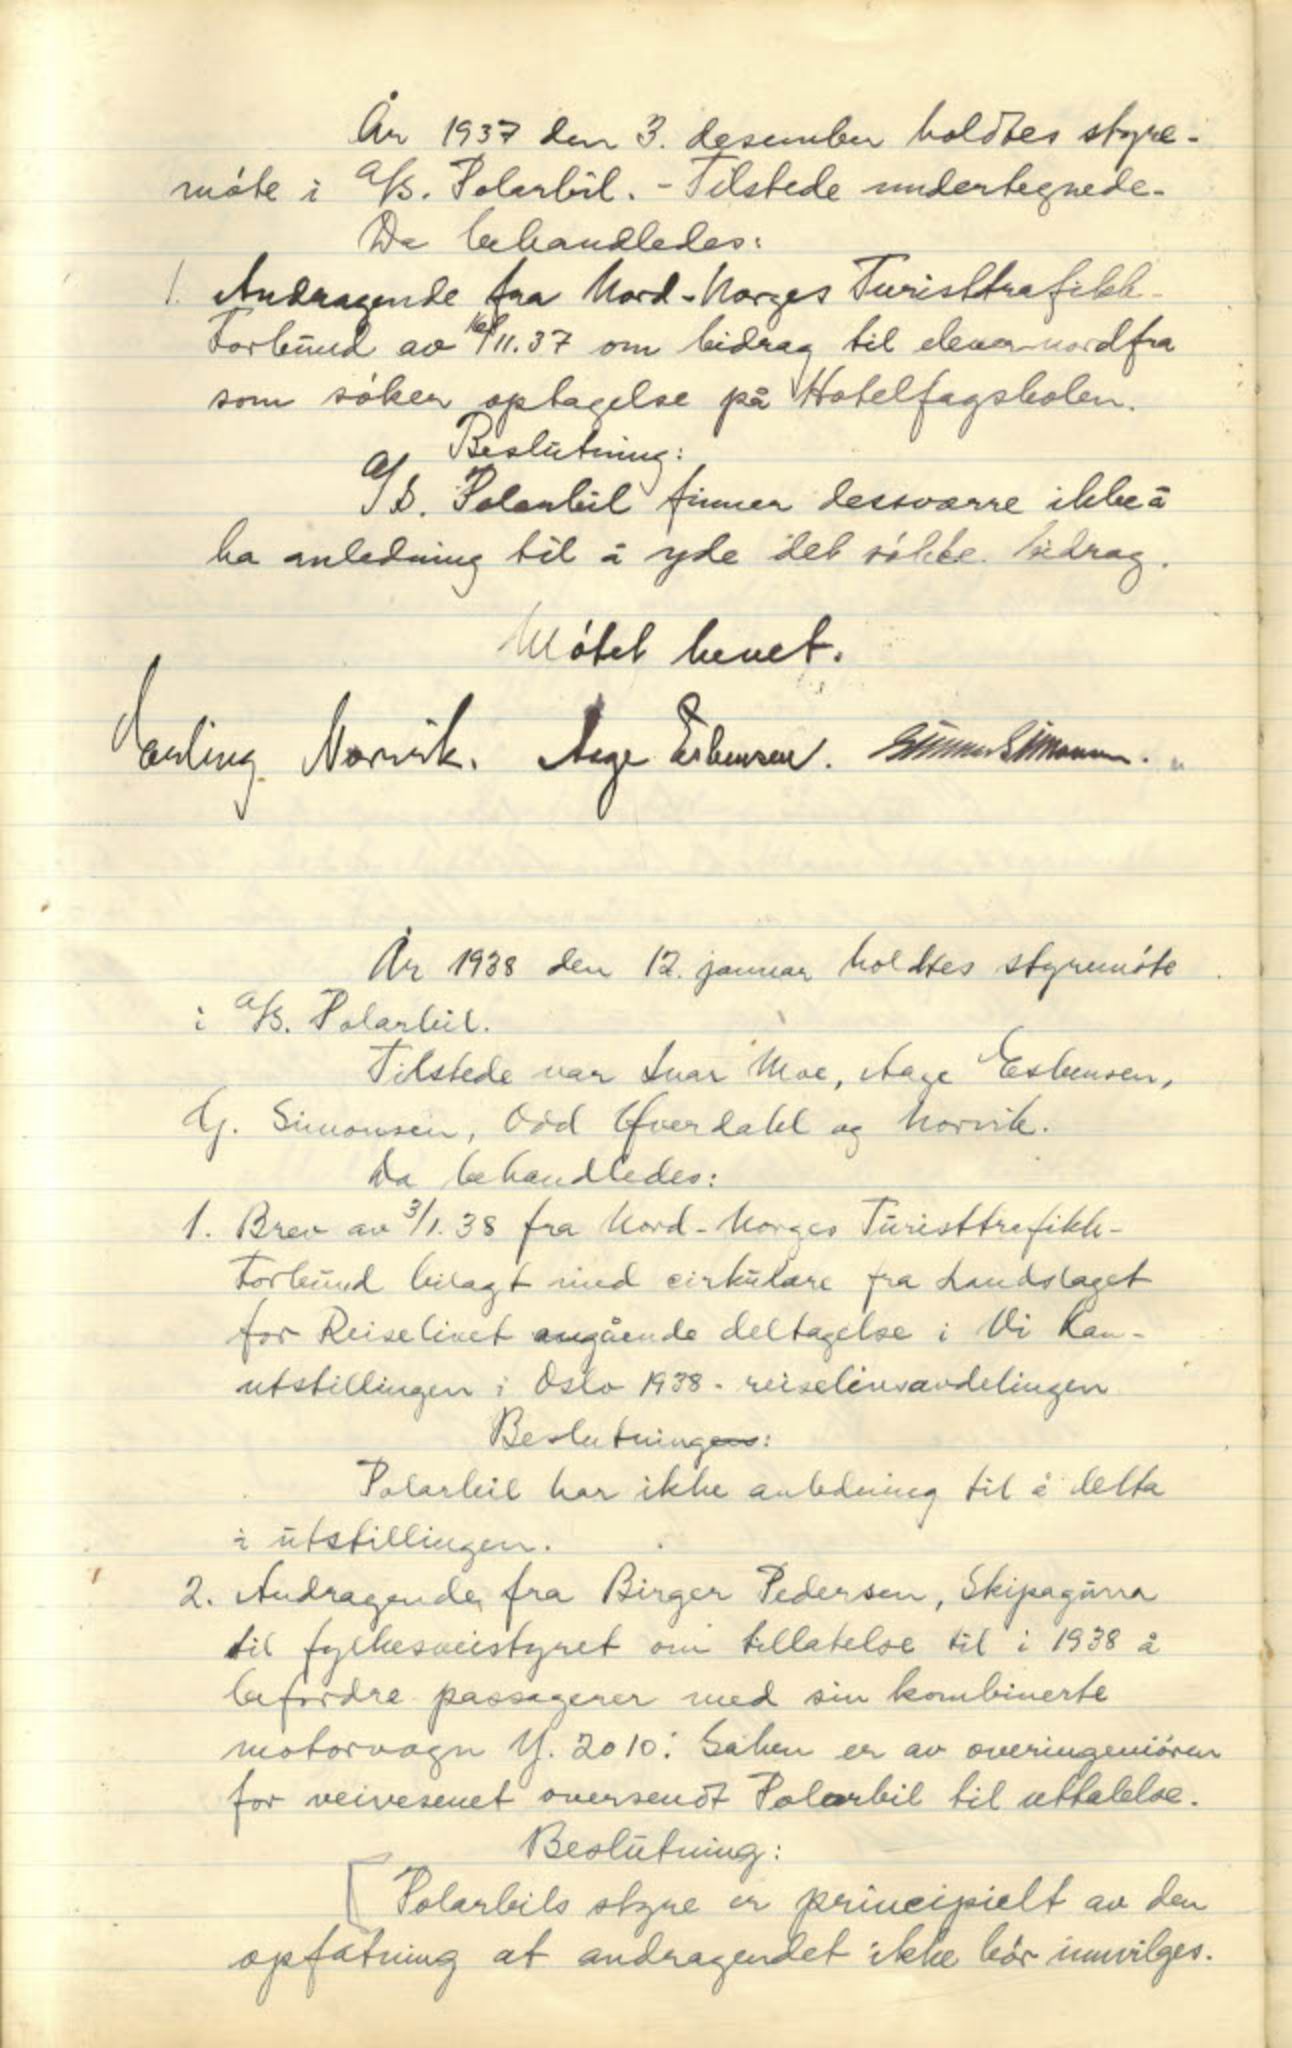 År 1937 den 3. desember holdtes styre-
møte i A/S. Polarbil. - Tilstede undertegnede.
Da behandledes:
1. Andragende fra Nord-Norges Turisttrafikk-
Forbund av 16/11.37 om bidrag til elever nordfra
som søker optagelse på Hotelfagskolen.
Beslutning:
A/S. Polarbil finner dessværre ikke å
ha anledning til å yde det søkte bidrag.
Møtet hevet.
Erling Norvik. Aage Esbensen. Gunnar Simonsen.
År 1938 den 12. januar holdtes styremøte
i A/S. Polarbil.
Tilstede var Ivar Moe, Aage Esbensen,
G. Simonsen, Odd Øfverdahl og Norvik.
Da behandledes:
1. Brev av 3/1.38 fra Nord-Norges Turisttrafikk-
Forbund bilagt med cirkulære fra Landslaget
for Reiselivet angående deltagelse i Vi Kan-
utstillingen i Oslo 1938 - reiselivsavdelingen
Beslutningen:
Polarbil har ikke anledning til å delta
i utstillingen.
2. Andragende fra Birger Pedersen, Skipagurra
til fylkesveistyret om tillatelse til i 1938 å
befordre passagerer med sin kombinerte
motorvogn Y. 2010. Saken er av overingeniøren
for veivesenet oversendt Polarbil til uttalelse.
Beslutning:
Polarbils styre er principielt av den
opfatning at andragendet ikke bør innvilges.